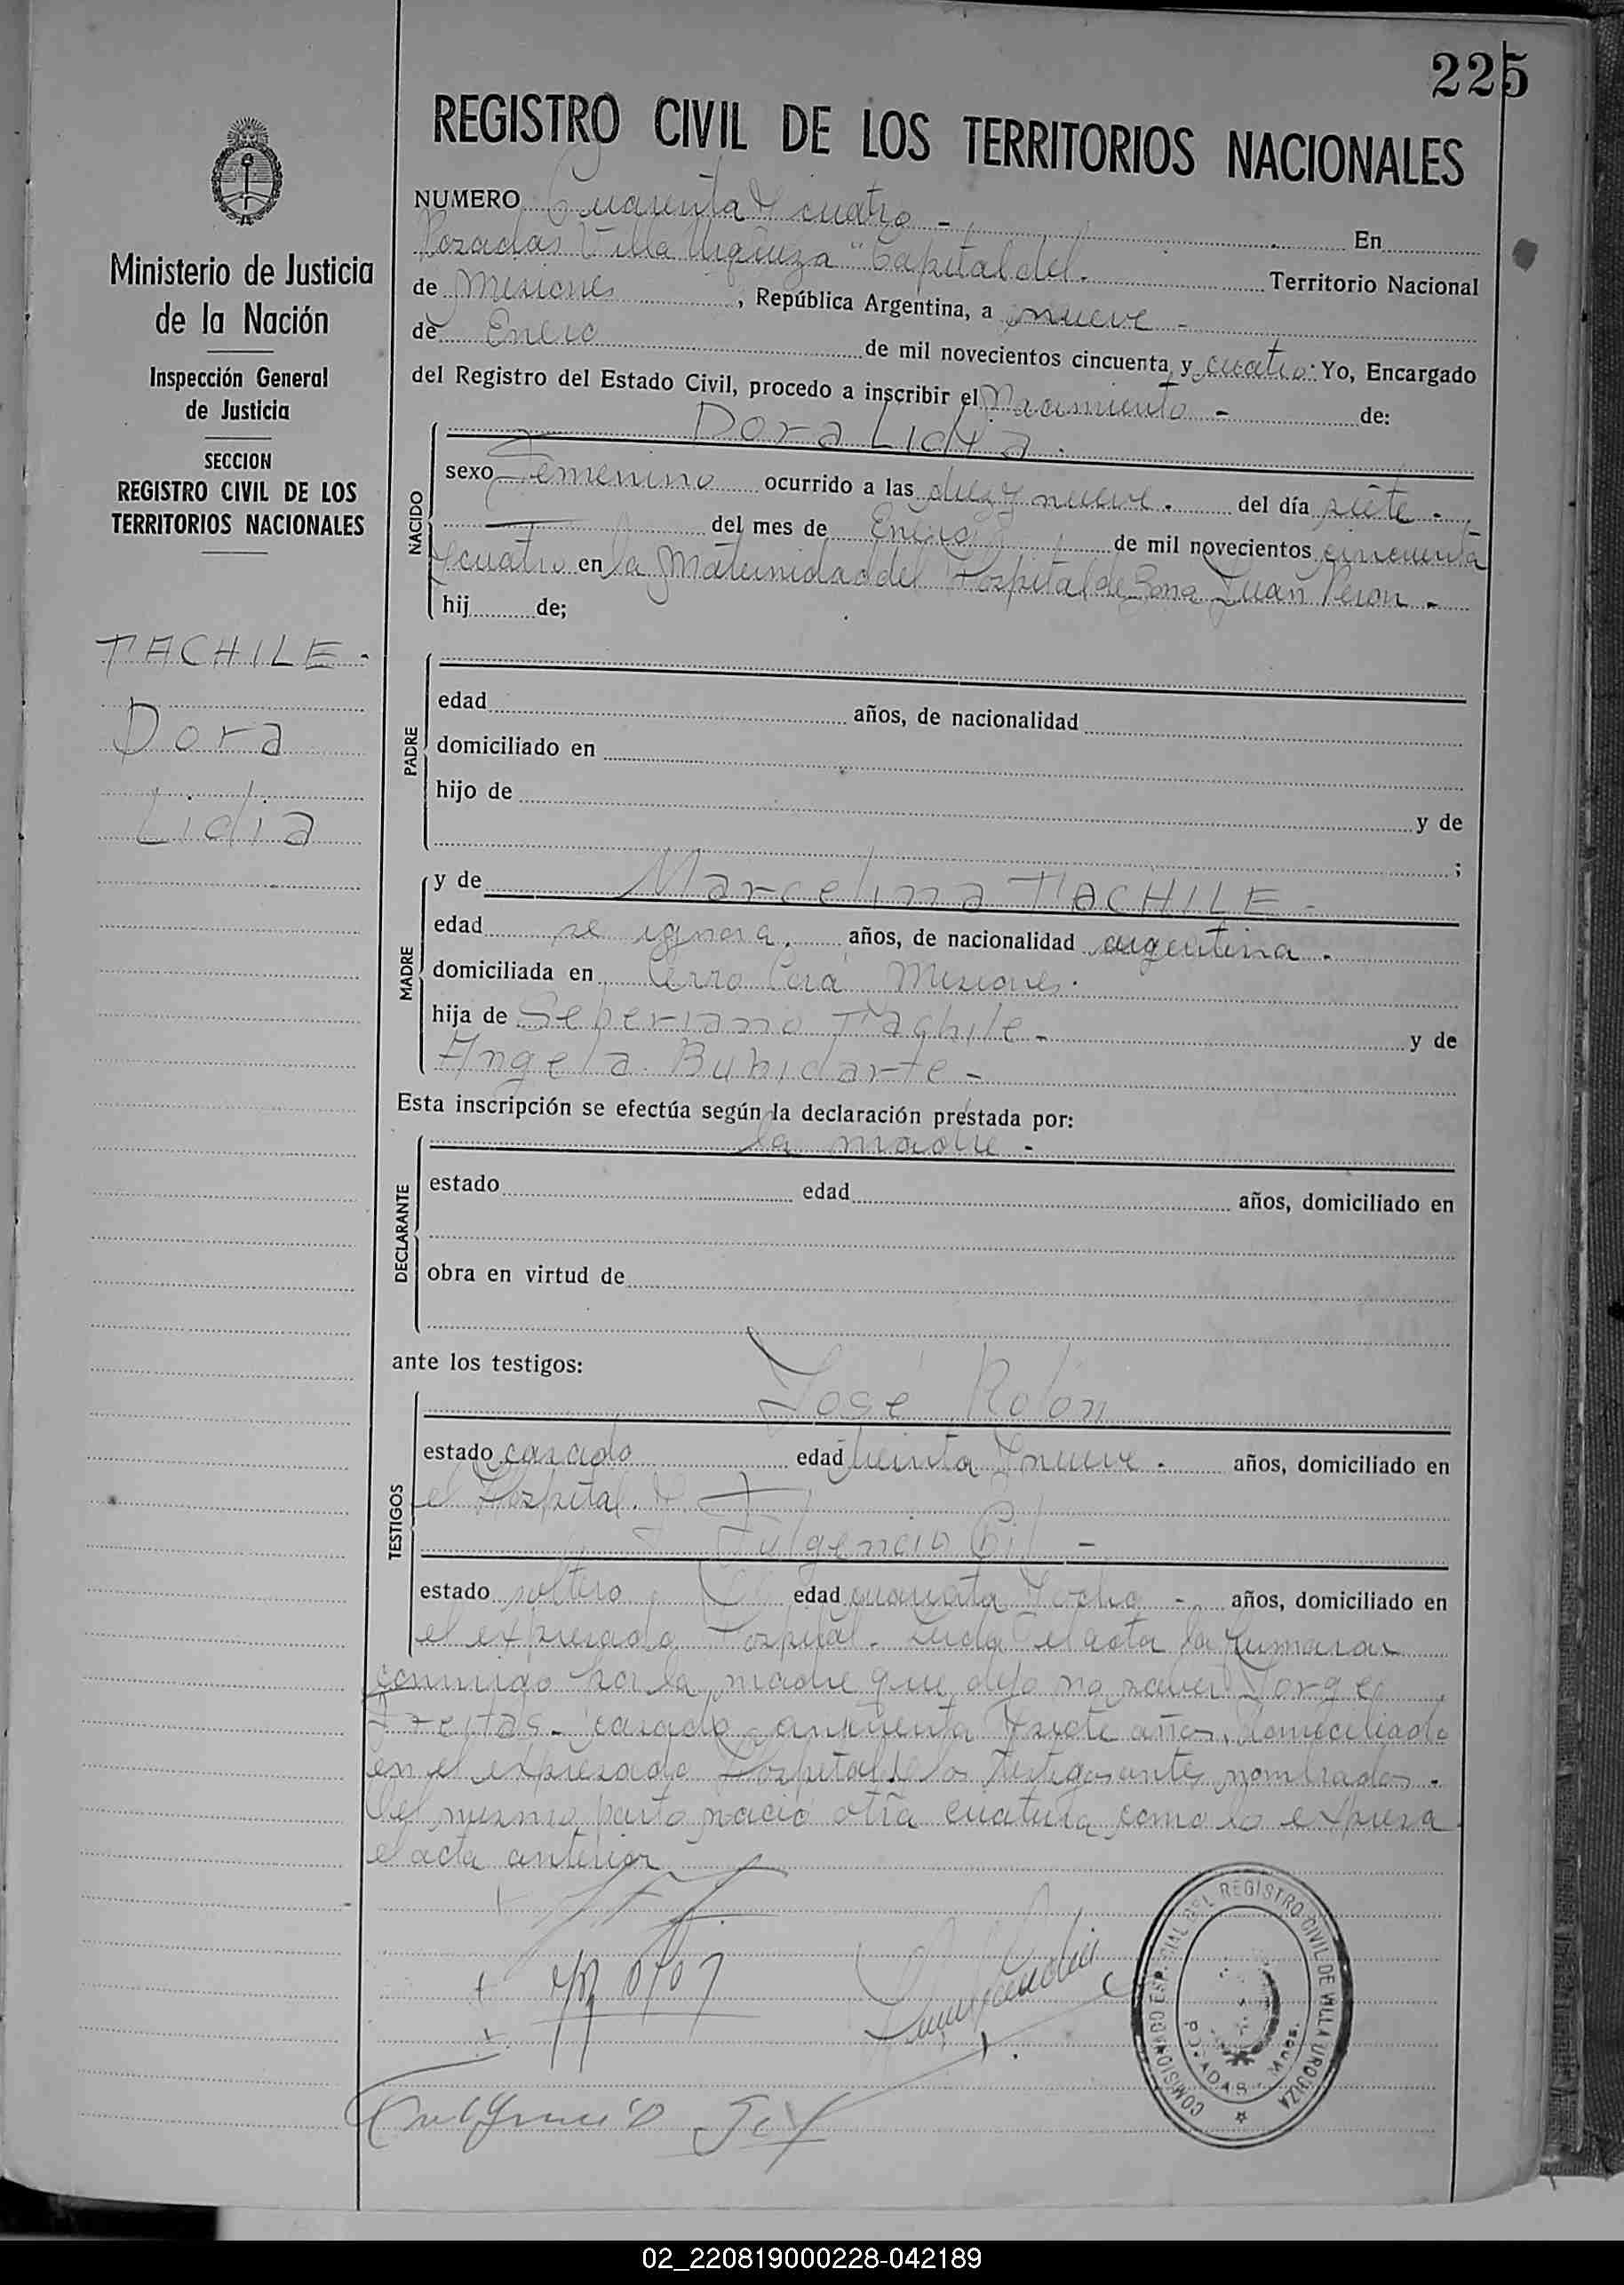 225
REGISTRO CIVIL DE LOS TERRITORIOS NACIONALES
Ministerio de Justicia
de la Nación
Inspección General
de Justicia
SECCION
REGISTRO CIVIL DE LOS
TERRITORIOS NACIONALES
TACHILE.
Dora
Lidia
NUMERO Cuarenta y cuatro - En
Posadas Villa Urquiza "Capital del Territorio Nacional
de Misiones, República Argentina, a nueve -
de Enero de mil novecientos cincuenta y cuatro. Yo, Encargado
del Registro del Estado Civil, procedo a inscribir el Nacimiento - de:
NACIDO
Dora Lidia.
sexo Femenino ocurrido a las diez y nueve. del día siete -
del mes de Enero de mil novecientos cincuenta
y cuatro en la Maternidad del Hospital de Zona Juan Peron -
hij de;
PADRE
edad años, de nacionalidad
domiciliado en
hijo de y de
;
MADRE
y de Marcelina TACHILE -
edad se ignora. años, de nacionalidad argentina.
domiciliada en Cerro Corá Misiones.
hija de Seberiano Tachile - y de
Angela Bubidarte -
Esta inscripción se efectúa según la declaración prestada por:
DECLARANTE
la madre -
estado edad años, domiciliado en
obra en virtud de
ante los testigos:
TESTIGOS
José Rolón
estado casado edad treinta y nueve. años, domiciliado en
el Hospital. y
Fulgencio Gil -
estado soltero edad cuarenta y ocho - años, domiciliado en
el expresado Hospital. Leida el acta la firmaron
conmigo por la madre que dijo no saver Jorge
Freitas. casado cincuenta y siete años, domiciliado
en el expresado Hospital y los testigos antes nombrados.
Del mismo parto nació otra criatura como lo expresa
el acta anterior
Fulgencio Gil
COMISIONADO ESPECIAL DEL REGISTRO CIVIL DE VILLA URQUIZA
POSADAS - Mnes.
02_220819000228-042189